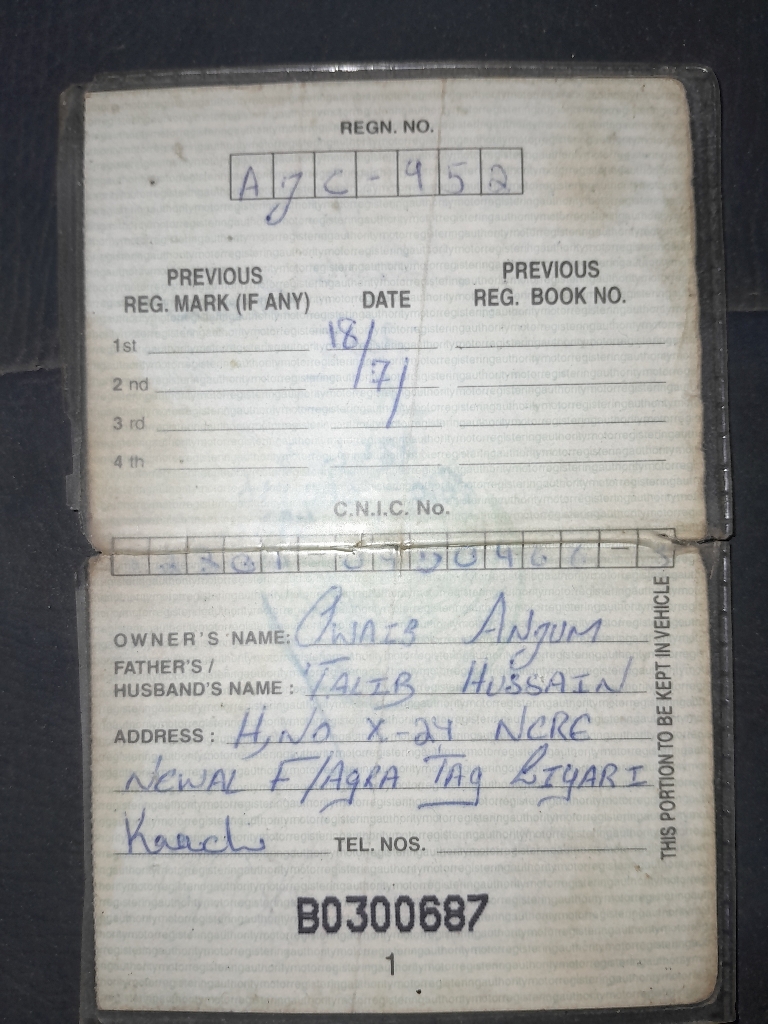 REGN. NO.
A J C - 4 5 2
PREVIOUS REG. MARK (IF ANY) DATE PREVIOUS REG. BOOK NO.
1st 18/
2 nd 7/
3 rd
4 th
C.N.I.C. No.
OWNER'S NAME: OWAIB ANJUM
FATHER'S /
HUSBAND'S NAME : TALIB HUSSAIN
ADDRESS : H,NO X-24 NCRE
NEWAL F/AgRA TAg LIYARI
Karachi TEL. NOS.
THIS PORTION TO BE KEPT IN VEHICLE
B0300687
1